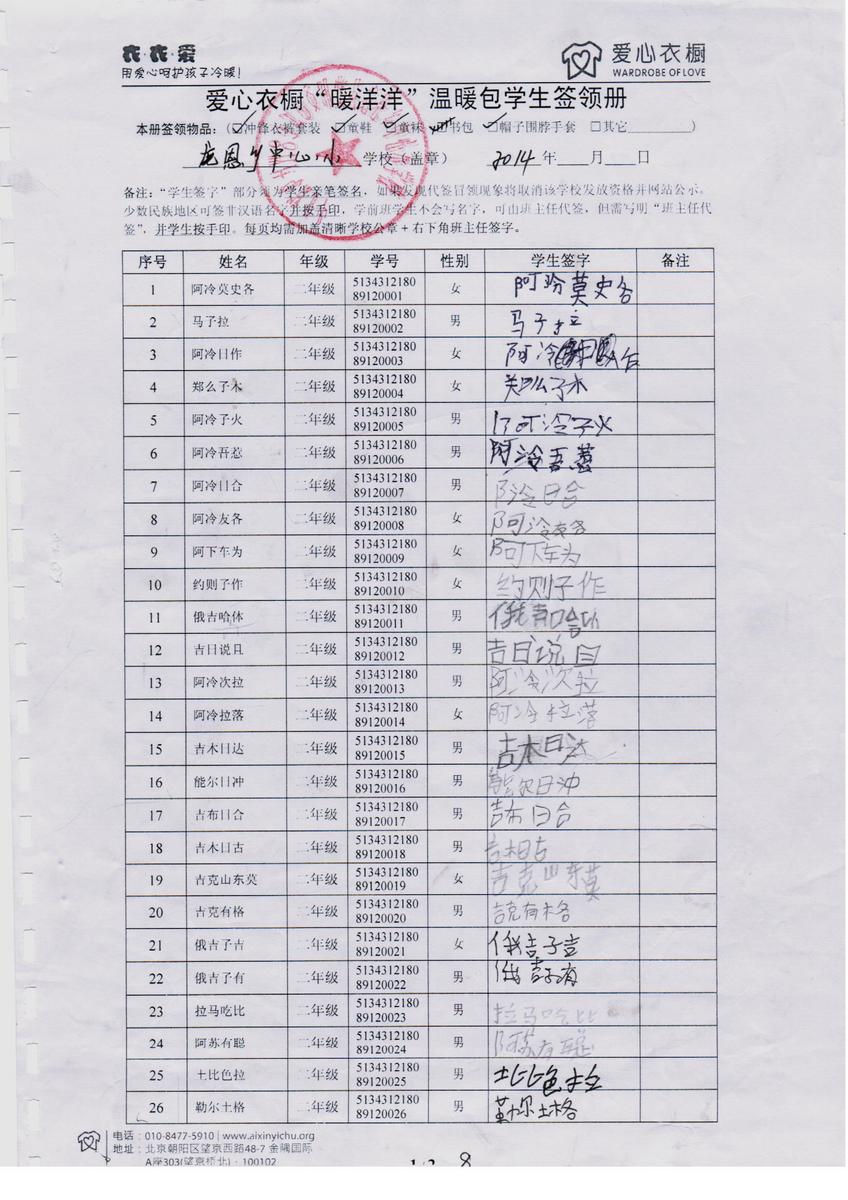 衣·衣·爱
用爱心呵护孩子冷暖!
爱心衣橱
WARDROBE OF LOVE
爱心衣橱“暖洋洋”温暖包学生签领册
本册签领物品:(☑冲锋衣裤套装 ☑童鞋 ☑童袜 ☑书包 ☑帽子围脖手套 □其它________)
龙恩乡中心小 学校(盖章) 2014 年____月____日
备注:“学生签字”部分须为学生亲笔签名,如果发现代签冒领现象将取消该学校发放资格并网站公示。
少数民族地区可签非汉语名字并按手印,学前班学生不会写名字,可由班主任代签,但需写明“班主任代
签”,并学生按手印。每页均需加盖清晰学校公章+右下角班主任签字。
序号 姓名 年级 学号 性别 学生签字 备注
1 阿冷莫史各 二年级 513431218089120001 女 阿冷莫史各
2 马子拉 二年级 513431218089120002 男 马子拉
3 阿冷日作 二年级 513431218089120003 女 阿冷作
4 郑么子木 二年级 513431218089120004 女 郑么子木
5 阿冷子火 二年级 513431218089120005 男 阿冷子火
6 阿冷吾惹 二年级 513431218089120006 男 阿冷吾惹
7 阿冷日合 二年级 513431218089120007 男 阿冷日合
8 阿冷友各 二年级 513431218089120008 女 阿冷友各
9 阿下车为 二年级 513431218089120009 女 阿下车为
10 约则子作 二年级 513431218089120010 女 约则子作
11 俄吉哈体 二年级 513431218089120011 男 俄吉哈体
12 吉日说且 二年级 513431218089120012 男 吉日说且
13 阿冷次拉 二年级 513431218089120013 男 阿冷次拉
14 阿冷拉落 二年级 513431218089120014 女 阿冷拉落
15 吉木日达 二年级 513431218089120015 男 吉木日达
16 能尔日冲 二年级 513431218089120016 男 能尔日冲
17 吉布日合 二年级 513431218089120017 男 吉布日合
18 吉木日古 二年级 513431218089120018 男 吉木日古
19 吉克山东莫 二年级 513431218089120019 女 吉克山东莫
20 吉克有格 二年级 513431218089120020 男 吉克有格
21 俄吉子吉 二年级 513431218089120021 女 俄吉子吉
22 俄吉子有 二年级 513431218089120022 男 俄吉子有
23 拉马吃比 二年级 513431218089120023 男 拉马吃比
24 阿苏有聪 二年级 513431218089120024 男 阿苏有聪
25 土比色拉 二年级 513431218089120025 男 土比色拉
26 勒尔土格 二年级 513431218089120026 男 勒尔土格
电话:010-8477-5910 | www.aixinyichu.org
地址:北京朝阳区望京西路48-7 金隅国际
A座303(望京桥北)·100102
8